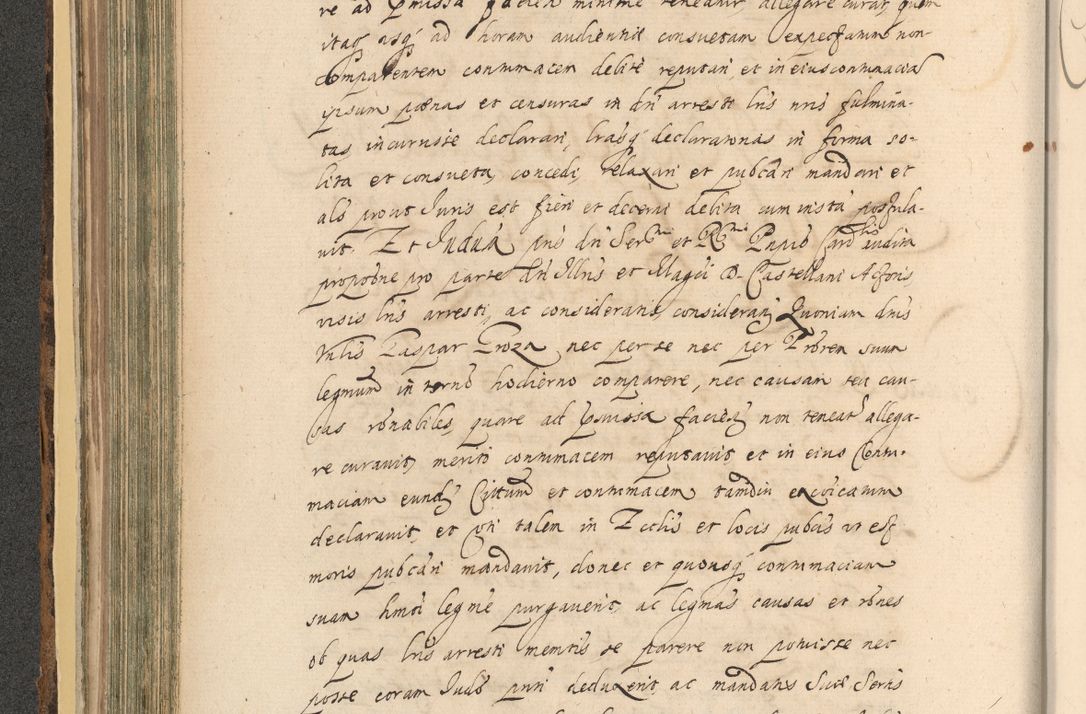 re ad pmissa facien minime teneatur allegare curat, quem
itaq usq ad horam audientiæ consuetam expectatum non
comparentem contumacem debite reputari, et in eius contumaciã
ipsum pœnas et censuras in dri arresti lris nris fulmina-
tas incurrisse declarari, lrasq declaratorias in forma so-
lita et consueta, concedi, relaxari et pubcari mandari et
als prout Juris est fieri et decerni debita cum instã postula-
vit. Et Judex pns dri Ser et R Prnis Card audita
propõne pro parte dri Illris et Magci D. Castellani Actoris
visis lris arresti, ac consideratis considerandis Quoniam dnus
Nblis Gaspar Groza nec per se nec per Prorem suum
legmum in termo hodierno comparere, nec causam seu cau-
sas rõnabiles, quare ad pmissa facien non teneatur allega-
re curavit, merito contumacem reputavit, et in eius Contu-
maciam eund Citatum et contumacem tamdiu excoicatum
declaravit, et pti talem in Ecclis et locis pubcis ut est
moris pubcari mandavit, donec et quousq contumaciam
suam hmoi legme purgaverit, ac legmas causas et rões
ob quas lris arresti memtis se parere non potuisse nec
posse coram Judce pnti deduxerit, ac mandatis Suæ Sertis